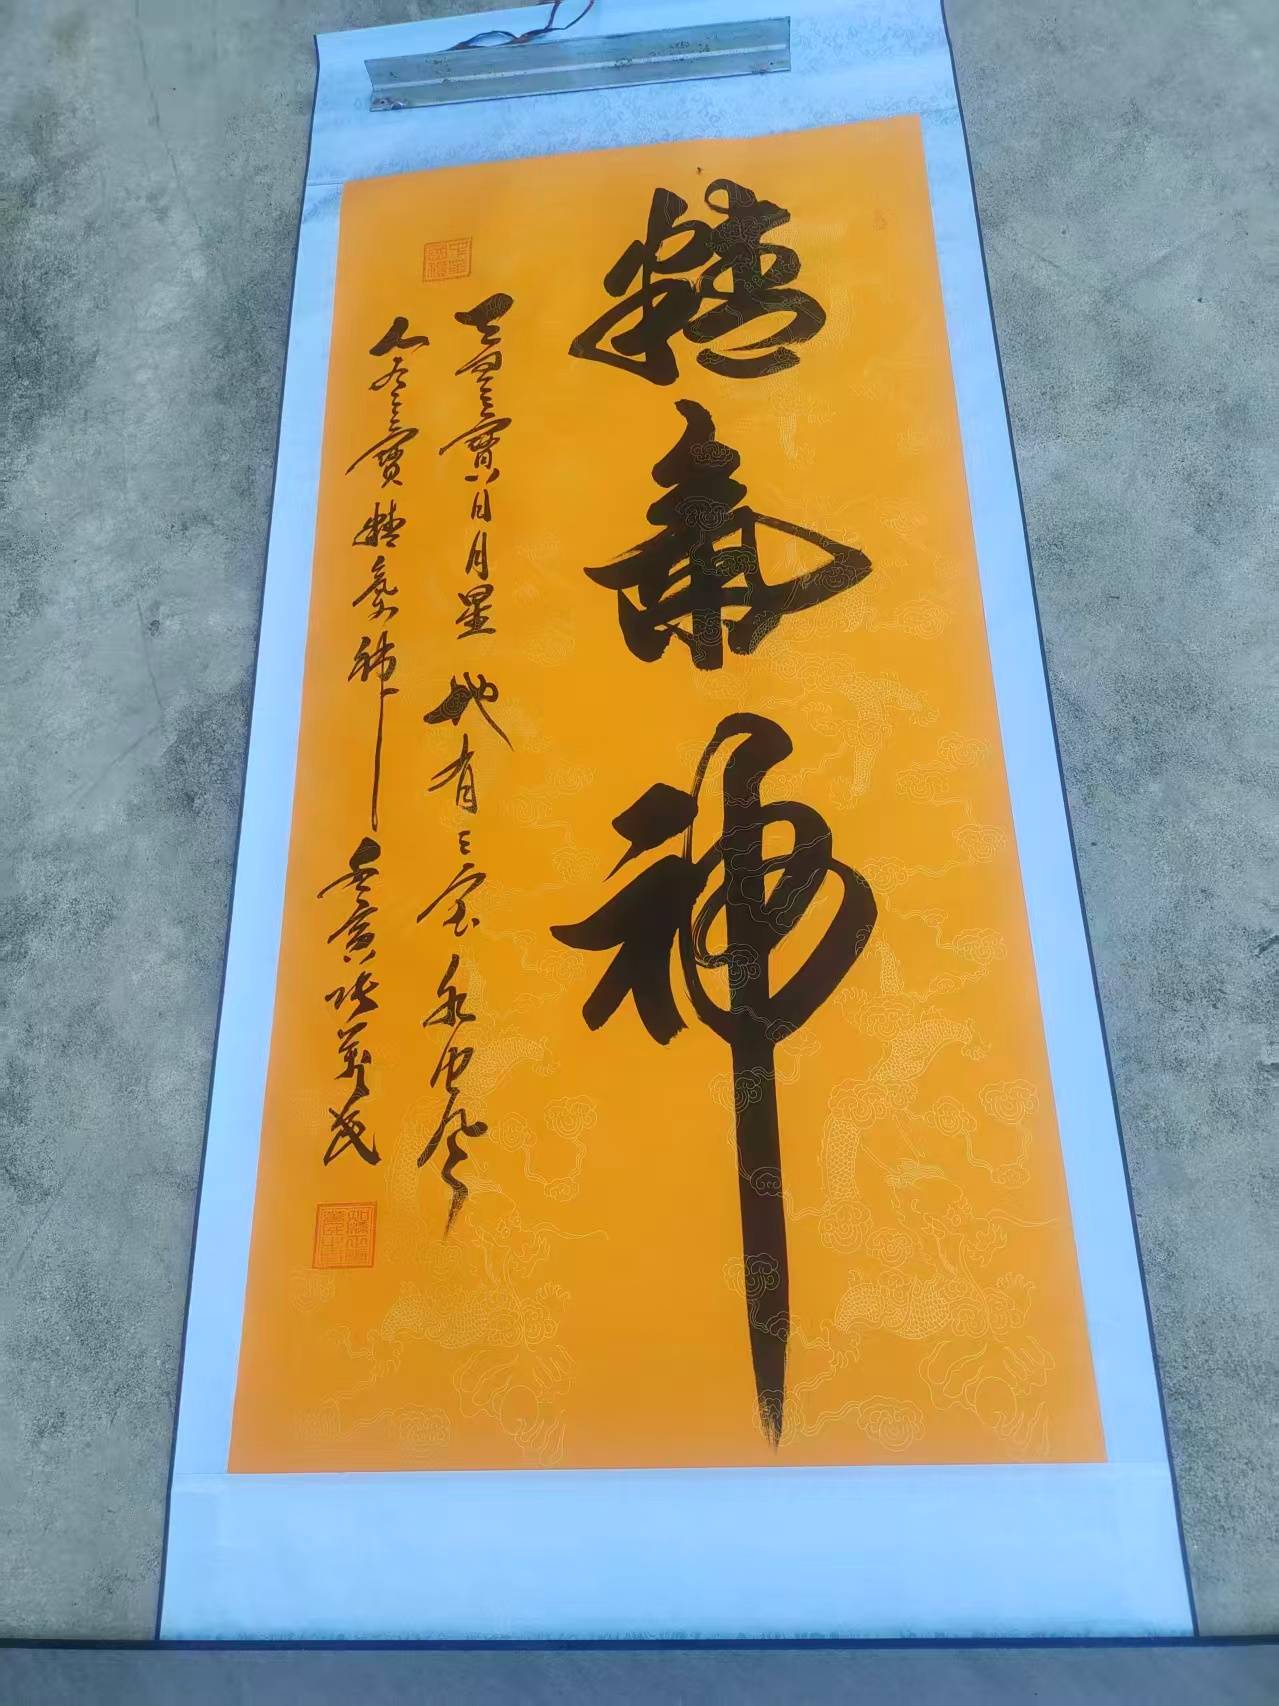 精氣神
天有三寶日月星 地有三宝水火風
人有三寶精氣神 壬寅 張義民